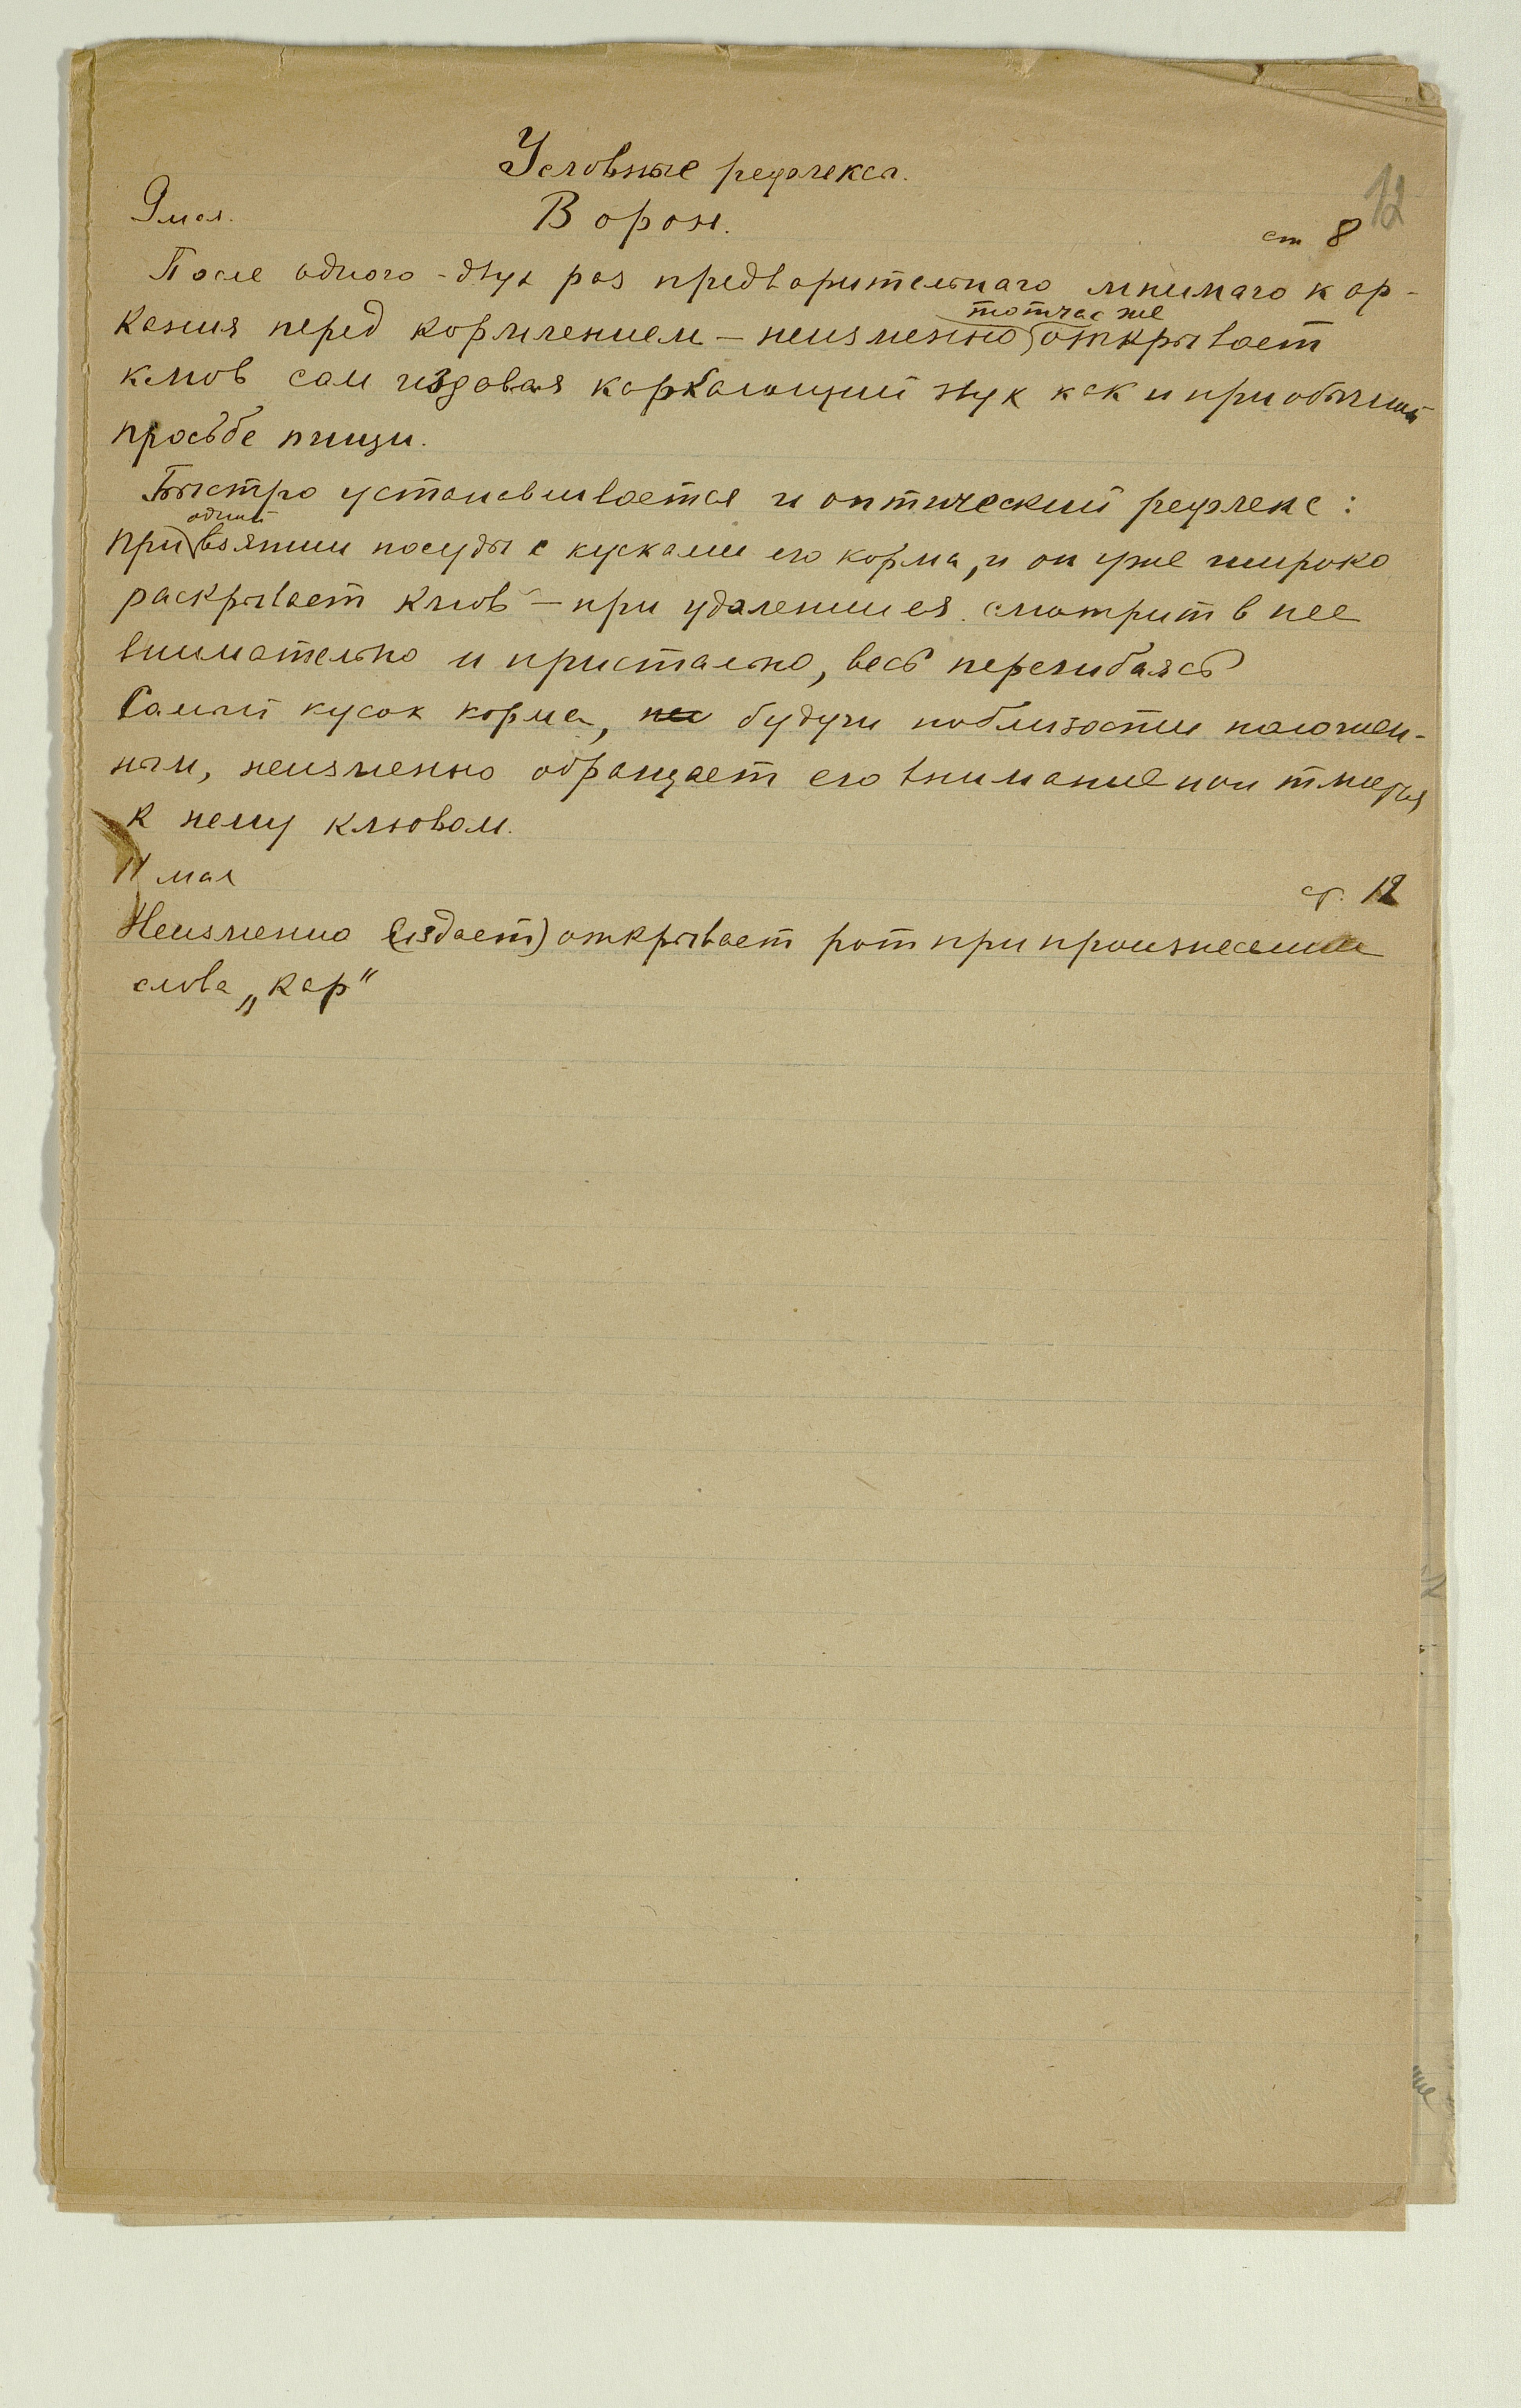 Условные рефлексы.
12
9 мая.
Ворон.
ст 8
После одного-двух раз предварительнаго мнимаго кар-
тотчас же
кания перед кормлением – неизменно открывает
клюв сам издавая каркающий звук как и при обычной
просьбе пищи.
Быстро устанавливается и оптический рефлекс:
одном
при взятии посуды с кусками его корма, и он уже широко
раскрывает клюв – при удалении ея смотрит в нее
внимательно и пристально, весь перегибаясь
Самый кусок корма, не будучи поблизости положен-
ным, неизменно обращает его внимание
к нему клювом.
11 мая
ст. 12
Неизменно (издает) открывает рот при произнесении
слова „кар"